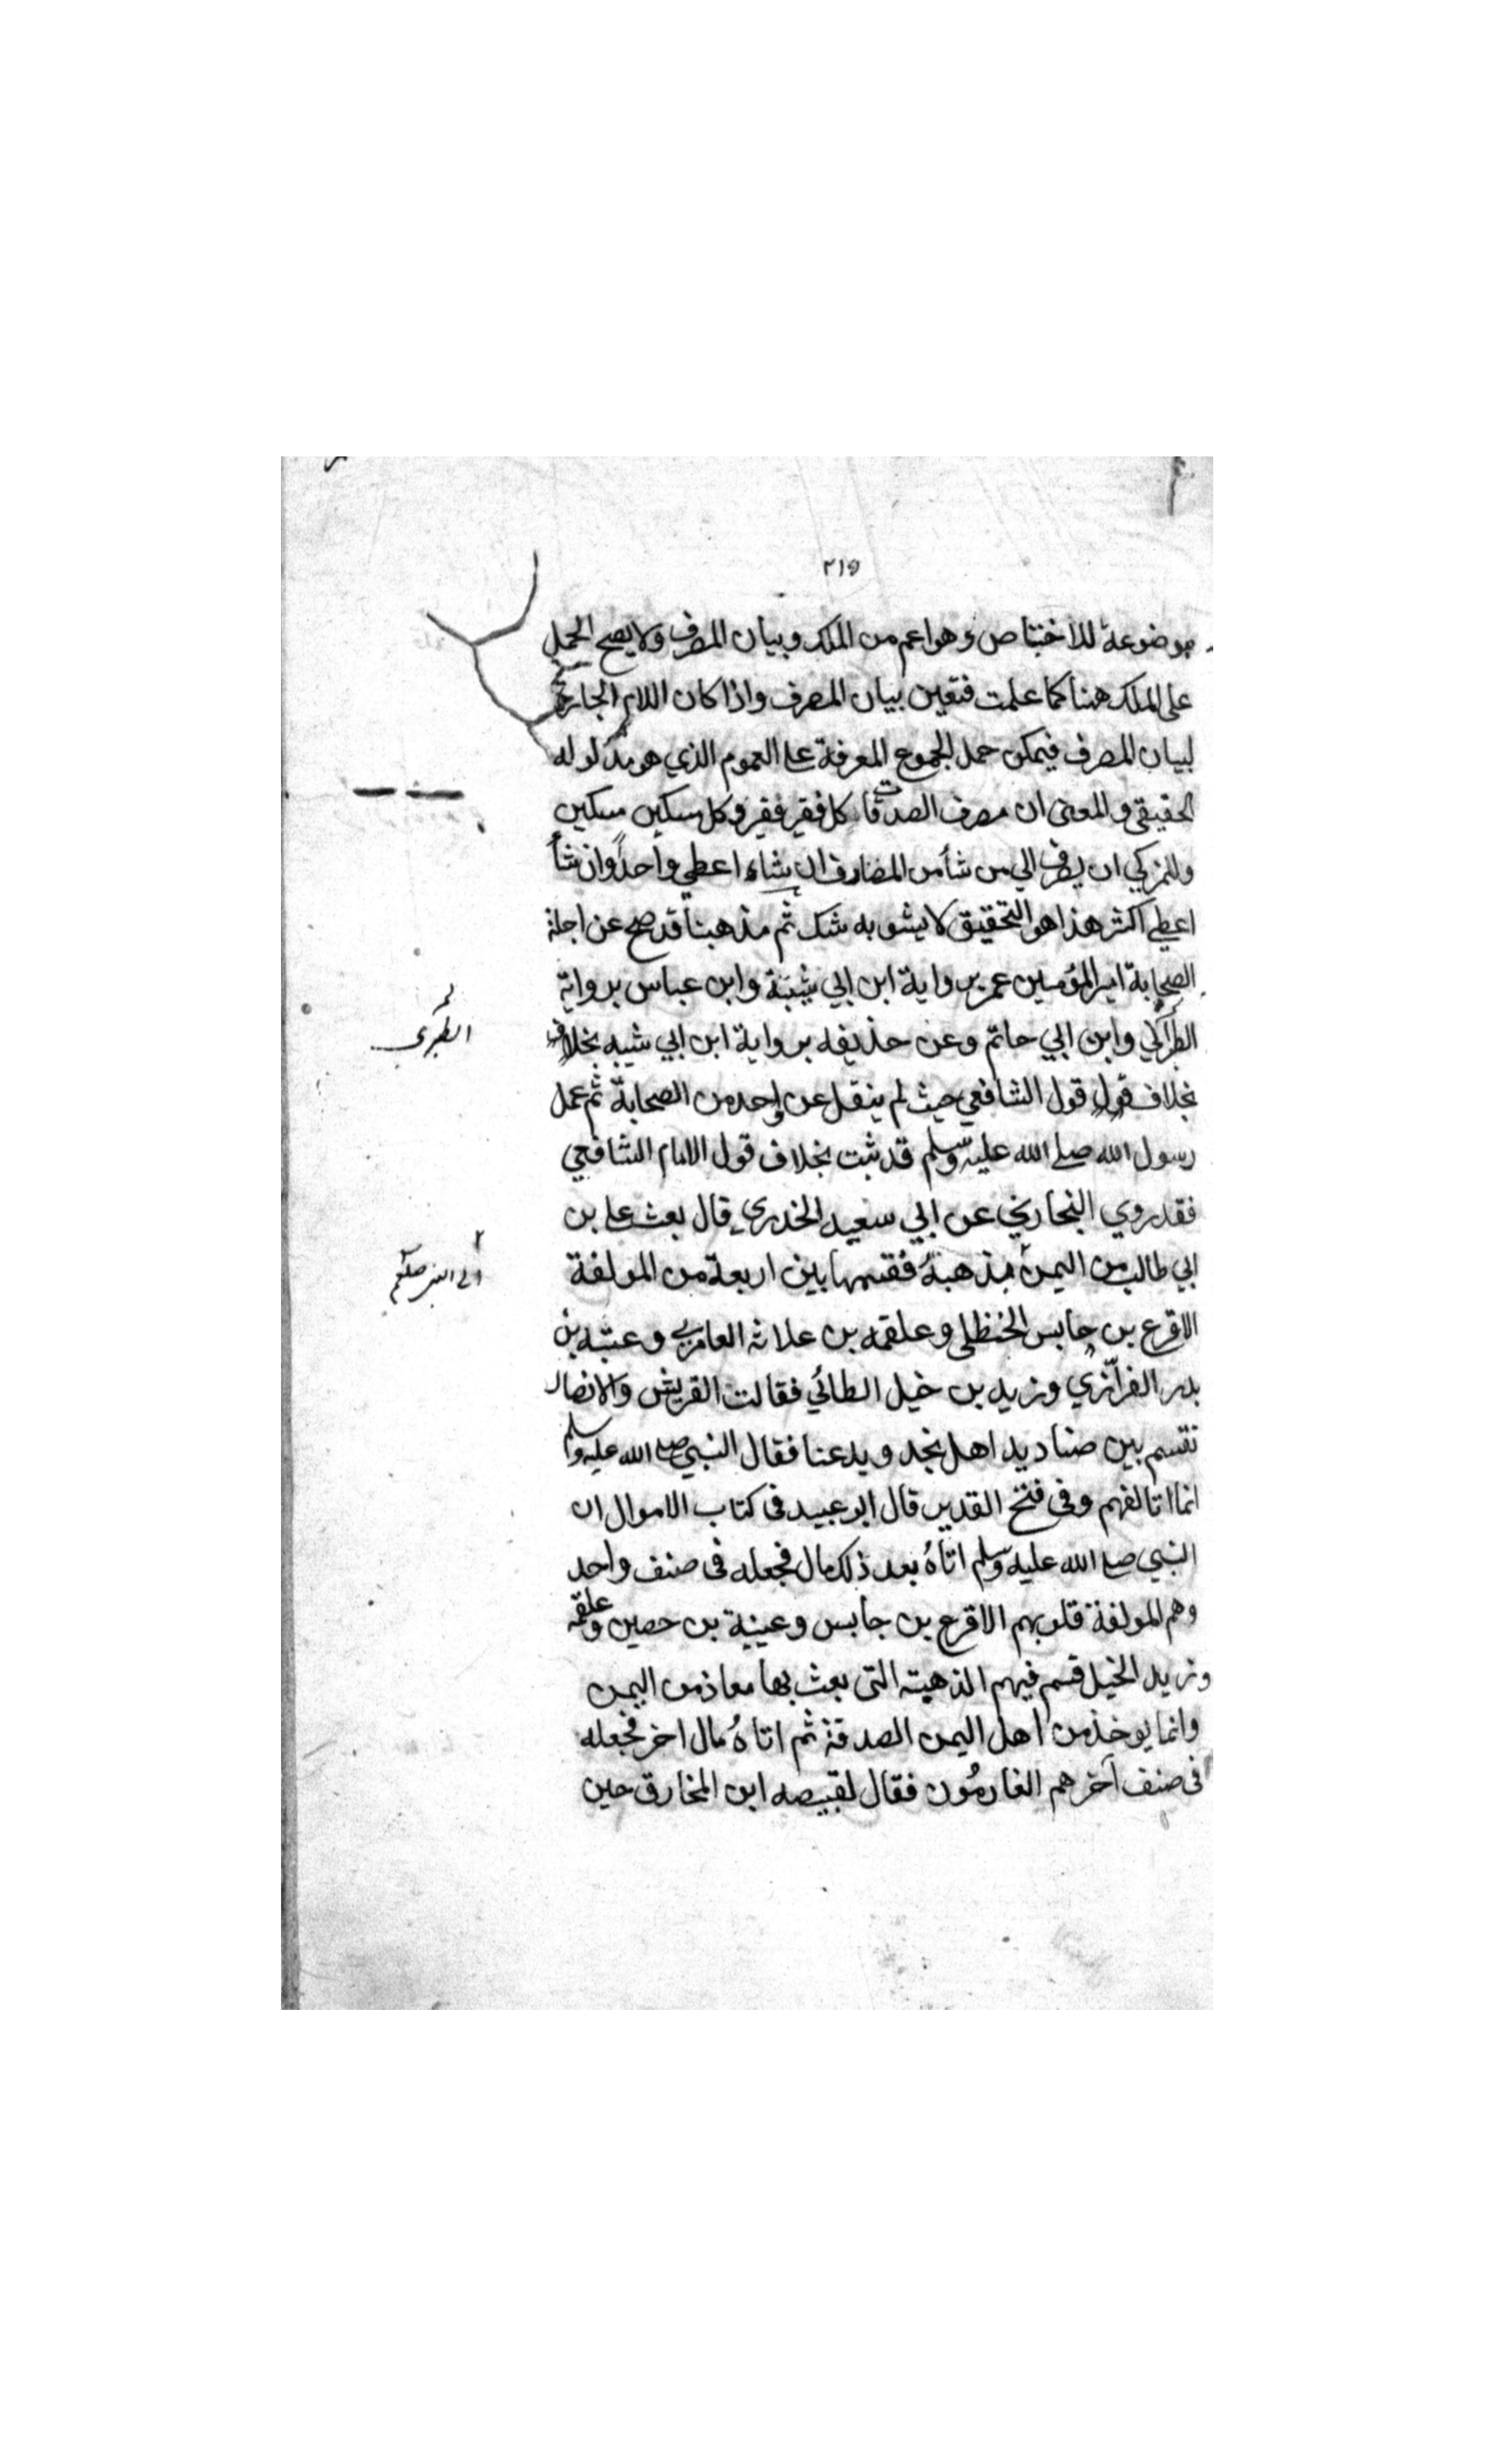 ٢١٥
موضوعة للاختصاص وهو اعم من الملك وبيان المصرف ولا يصح الحمل
على الملك ههنا كما علمت فتعين بيان المصرف واذا كان اللام الجارة
لبيان المصرف فيمكن حمل الجموع المعرفة على العموم الذي هو مدلوله
الحقيقي والمعنى ان مصرف الصدقات كل فقير فقير وكل مسكين مسكين
وللمزكي ان يصرف الي من شأ من المصارف ان شاء اعطي واحداً وان شأ
اعطي اكثر هذا هو التحقيق لا يشوبه شك ثم مذهبنا قد صح عن اجلة
الصحابة امير المؤمنين عمر برواية ابن ابي شيبة وابن عباس برواية
وابن ابي حاتم وعن حذيفه برواية ابن ابي شيبه بخلاف
الطبري
بخلاف قول قول الشافعي حيث لم ينقل عن واحد من الصحابة ثم عمل
رسول الله صلي الله عليه وسلم قد ثبت بخلاف قول الامام الشافعي
فقد روي البخاري عن ابي سعيد الخدري قال بعث علي بن
ابي طالب من اليمن بذهبة فقسمها بين اربعة من المولفة
الى النبي صلعم
الاقرع بن حابس الحنظلي وعلقمه بن علاثه العامري وعتبه بن
بدر الفزازي وزيد بن خيل الطائي فقالت القريش والانصار
تقسم بين صناديد اهل نجد ويدعنا فقال النبي صلى الله عليه وسلم
انما اتالفهم وفى فتح القدير قال ابو عبيد فى كتاب الاموال ان
النبي صلى الله عليه وسلم اتاهُ بعد ذلك مال فجعله فى صنف واحد
وهم المولفة قلوبهم الاقرع بن جابس وعينية بن حصين وعلقمه
وزيد الخيل قسم فيهم الذهبته التى بعث بها معاذ من اليمن
وانما يوخذ من اهل اليمن الصدقة ثم اتاهُ مال اخر فجعله
فى صنف آخر هم الغارمُون فقال لقبيصه ابن المخارق حين